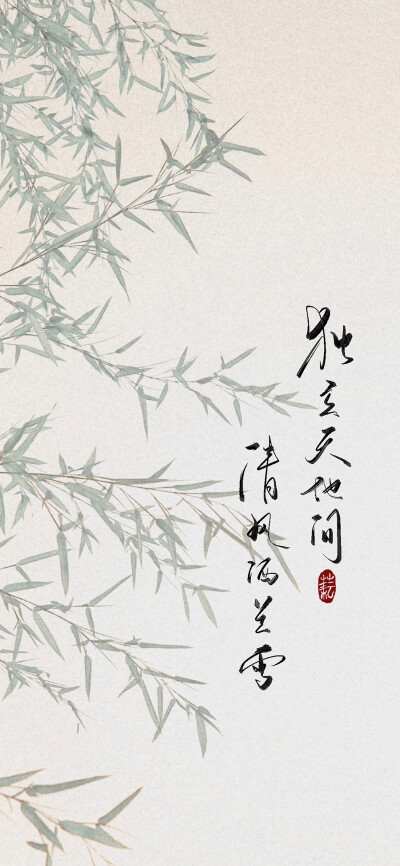 独立天地间
清风洒兰雪
耘